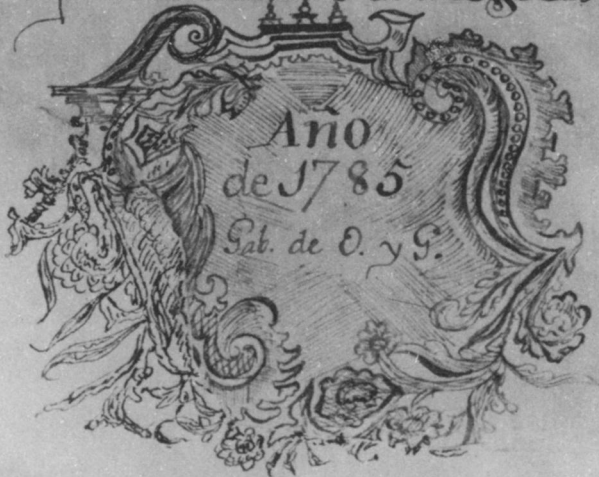 Año
de 1785
Gab. de O. y G.